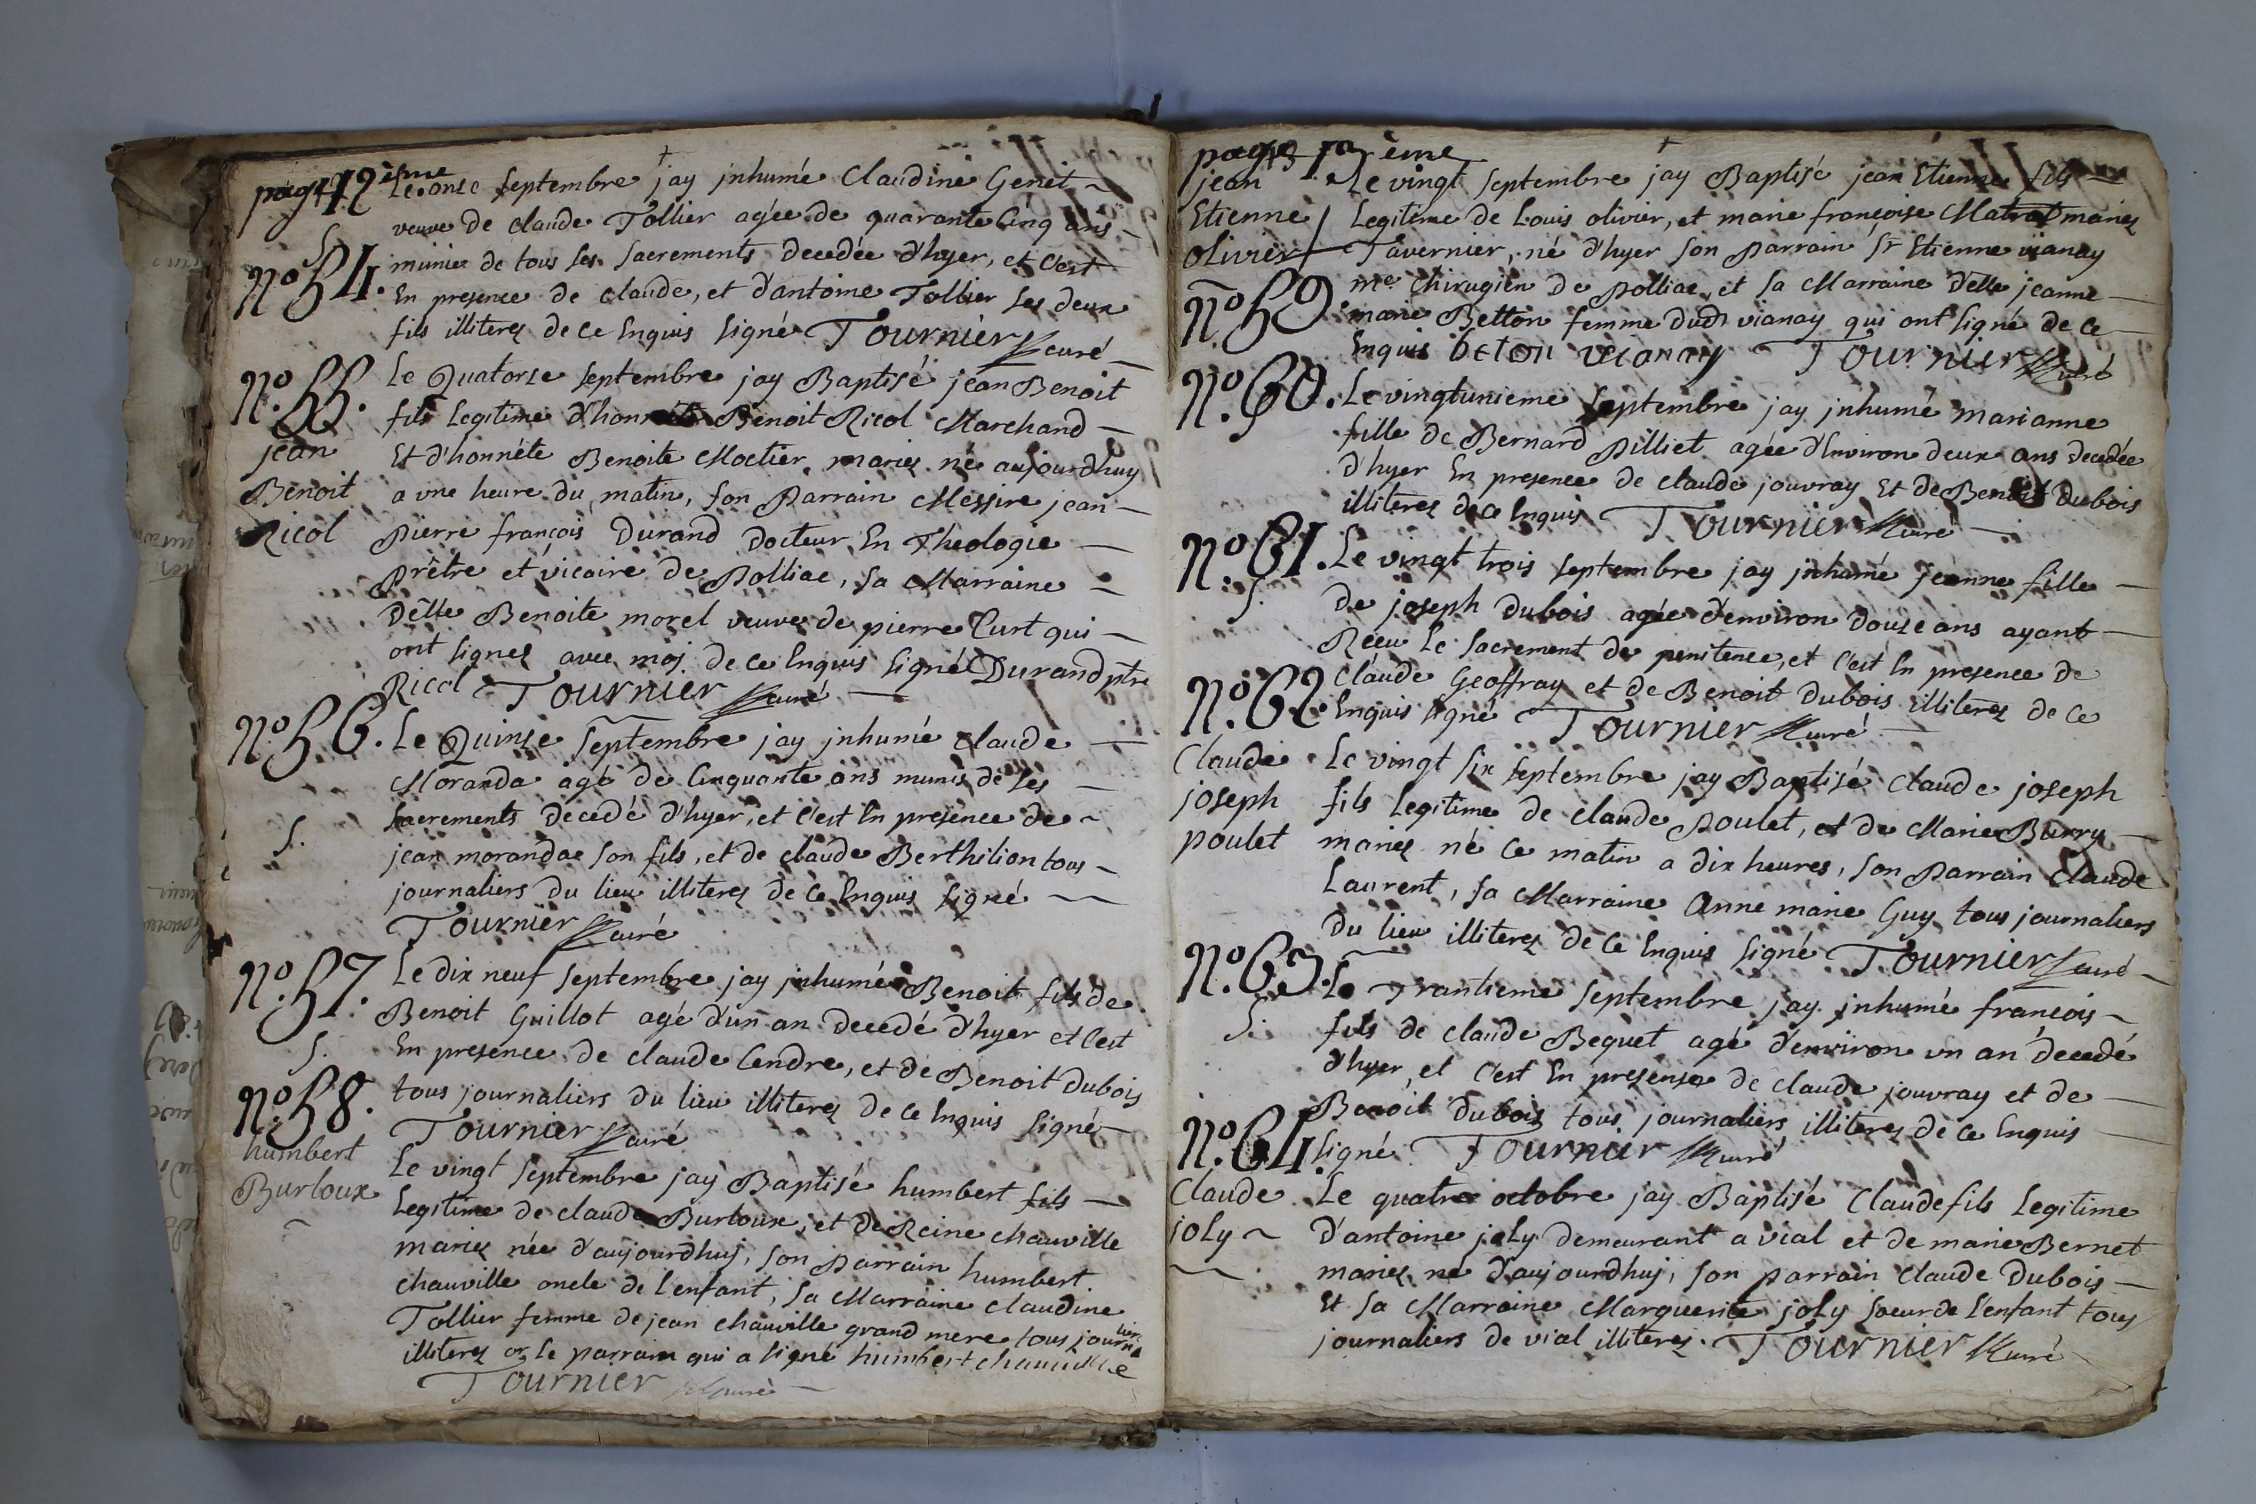 page 12ème
Le onze septembre jay jnhumé Claudine Genet
veuve de claude Tollier agée de quarante Cinq ans
S.
No 54. munie de tous ses sacrements decedée d'hyer, et c'est
En presence de claude, et d'antoine Tollier ses deux
fils illiterez de ce Enquis signé Tournier curé
No. 55. Le Quatorze septembre jay Baptisé jean Benoit
fils Legitime d'honnête Benoit Ricol Marchand
jean Et d'honnête Benoite Moctier mariez né aujourdhuy
Benoit a vne heure du matin, son Parrain Messire jean
Ricol Pierre françois Durand Docteur En Theologie
Prêtre et vicaire de Polliac, sa Marraine
Delle Benoite morel veuve de pierre Curt qui
ont signez avec moj de ce Enquis signé Durand ptre
Ricol Tournier curé
No 56. Le Quinze septembre jay jnhumé claude
Moranda agé de Cinquante ans munis de ses
sacrements decedé d'hyer, et c'est En presence de
S. jean moranda son fils, et de claude Berthilion tous
journaliers du lieu illiterez de ce Enquis signé
Tournier curé
No. 57. Le dix neuf septembre jay jnhumé Benoit fils de
Benoit Guillot agé d'un an decedé d'hyer et c'est
S. En presence de claude Cendre, et de Benoit Dubois
No 58. tous journaliers du lieu illiterez de ce Enquis signé
Tournier curé
humbert Le vingt septembre jay Baptisé humbert fils
Burloux Legitime de claude Burloux, et de Reine chauville
mariez née d'aujourdhuj, son Parrain humbert
chauville oncle de l'enfant, sa Marraine claudine
Tollier femme de jean chauville grand mere tous journaliers
illiterez or le parrain qui a signé humbert chauville
Tournier curé
page 13ème
jean Le vingt septembre jay Baptisé jean Etienne fils
Etienne Legitime de Louis olivier, et marie françoise Matrat mariez
olivier Tavernier, né d'hyer son Parrain Sr Etienne vianay
No 59. me Chirugien de Polliac, et sa Marraine Delle jeanne
marie Betton femme dudt vianay qui ont signé de ce
Enquis beton vianay Tournier curé
No. 60. Le vingtunieme septembre jay jnhumé marianne
S. fille de Bernard Pilliet agée d'Environ deux ans decedée
d'hyer En presence de claude jouvray Et de Benoit Dubois
illiterez de ce Enquis Tournier curé
No 61. Le vingt trois septembre jay jnhumé jeanne fille
S. De joseph Dubois agée d'environ douze ans ayant
Receu Le sacrement de penitence, et c'est En presence de
Claude Geoffray et de Benoit Dubois illiterez de ce
No. 62. Enquis signé Tournier curé
Claude Le vingt six septembre jay Baptisé Claude joseph
joseph fils Legitime de claude Poulet, et de Marie Burry
poulet mariez né ce matin a dix heures, son Parrain Claude
Laurent, sa Marraine Anne marie Guy tous journaliers
Du lieu illiterez de ce Enquis signé Tournier curé
No. 63. Le Trantieme septembre jay jnhumé francois
S. fils de claude Bequet agé d'environ vn an decedé
d'hyer, et c'est En presense de claude jouvray et de
Benoit Dubois tous journaliers illiterez de ce Enquis
No. 64. signé Tournier curé
Claude Le quatre octobre jay Baptisé Claude fils Legitime
joly d'antoine joly demeurant a vial et de marie Bernet
mariez né d'aujourdhuj, son parrain Claude Dubois
Et sa Marraine Marguerite joly soeur de l'enfant tous
journaliers de vial illiterez. Tournier curé